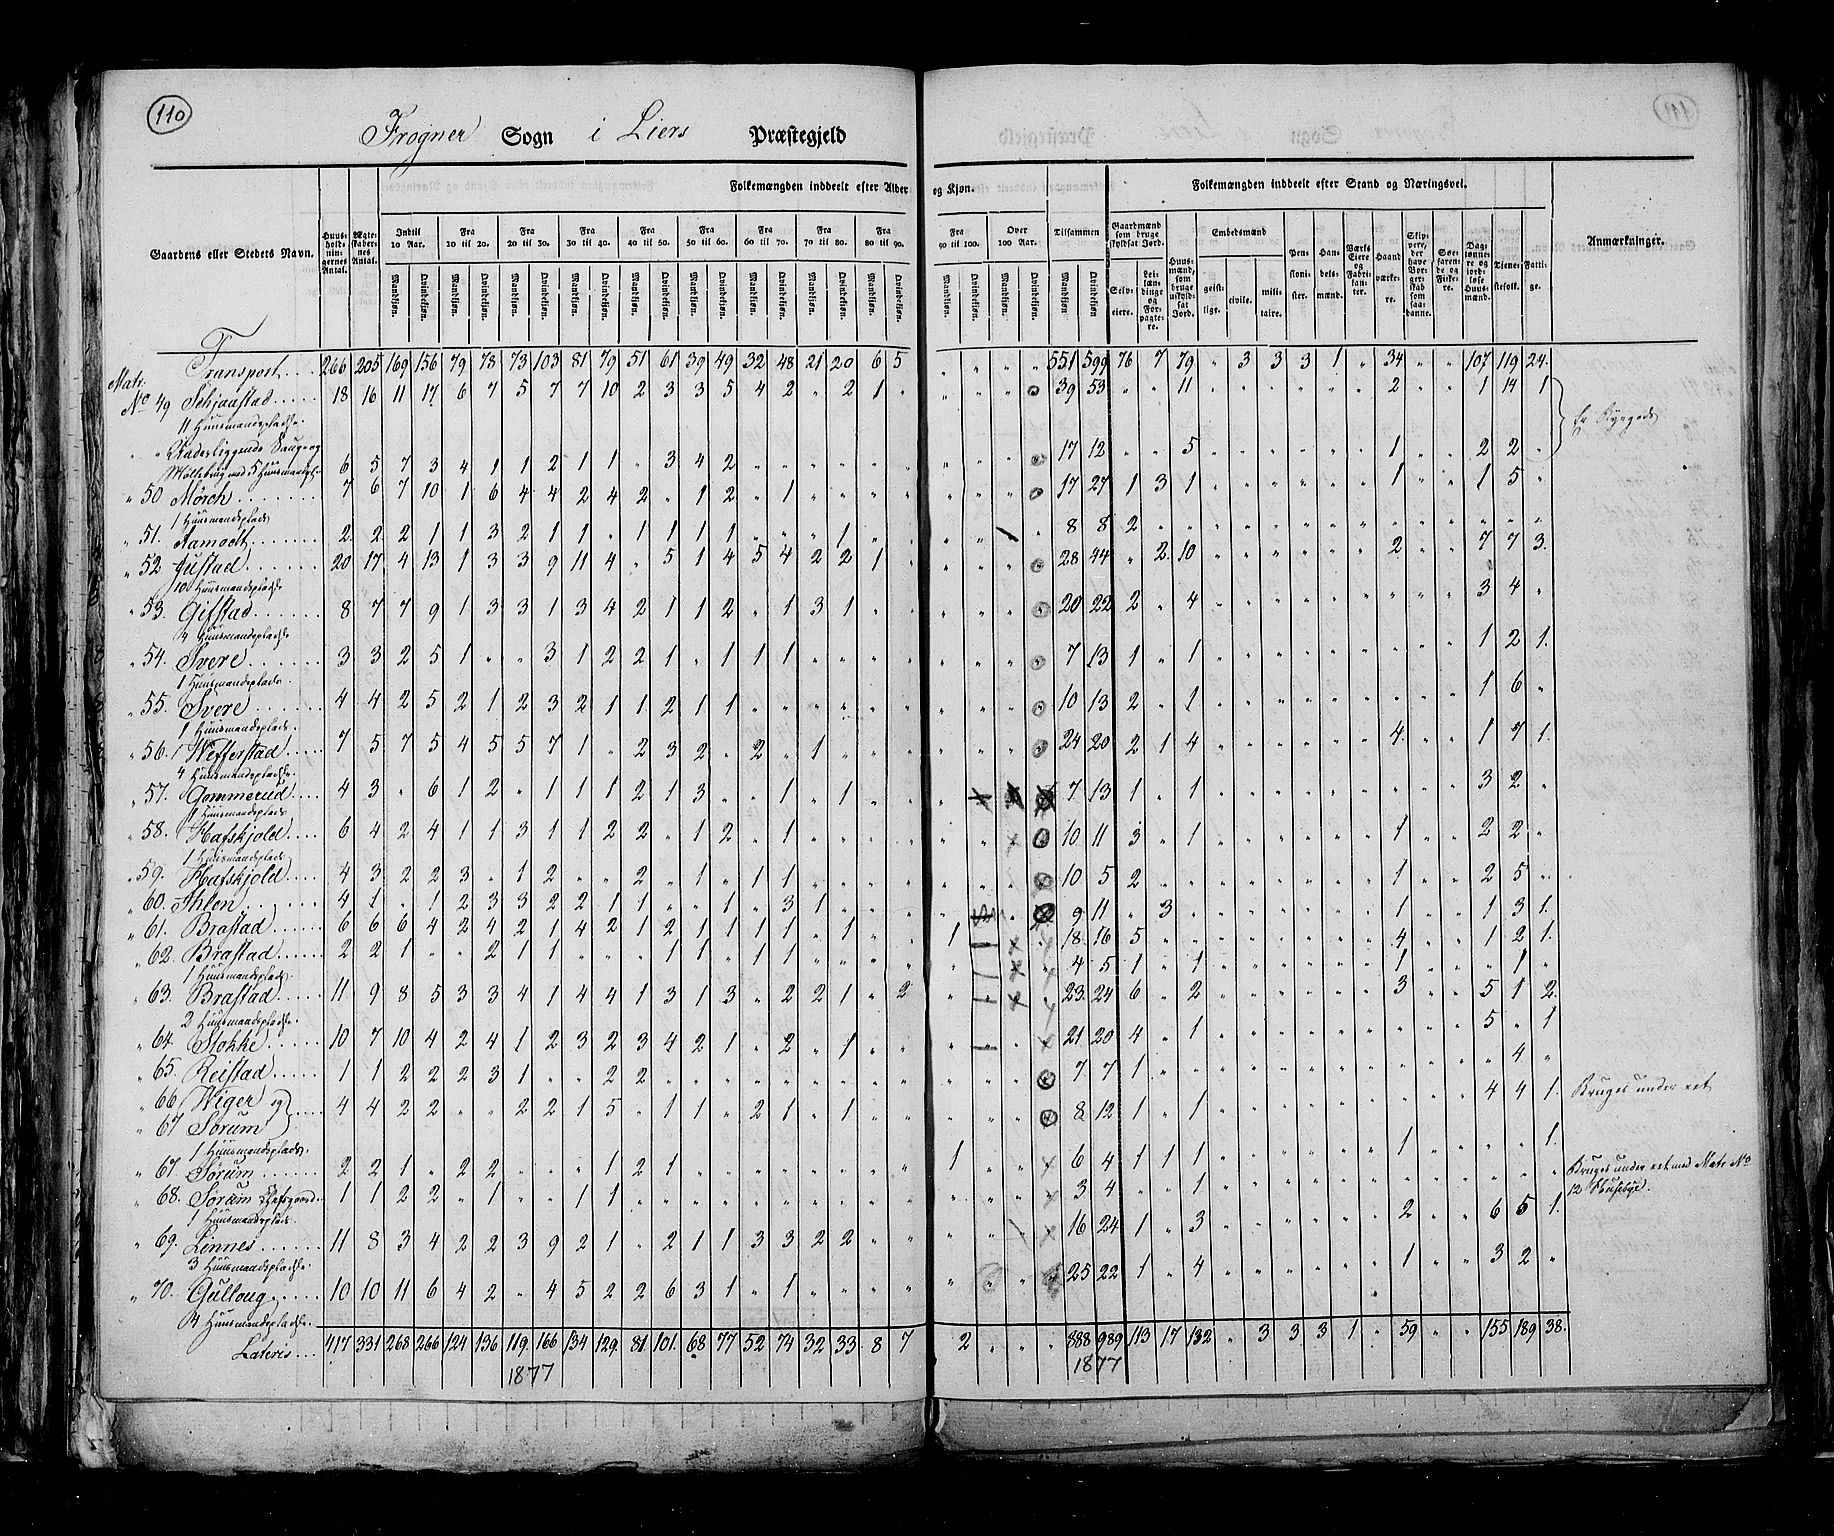 110
111
Frogner Sogn i Liers Præstegjeld
Gaardens eller Stedets Navn.
Huus-hold-nin-gernes Antal.
Ægte-skaber-nes Antal.
Folkemængden inddeelt efter Alder og Kjøn.
Indtil 10 Aar. Fra 10 til 20. Fra 20 til 30. Fra 30 til 40. Fra 40 til 50. Fra 50 til 60. Fra 60 til 70. Fra 70 til 80. Fra 80 til 90. Fra 90 til 100. Over 100 Aar. Tilsammen
Mandkjøn. Qvindekjøn.
Folkemængden inddeelt efter Stand og Næringsvei.
Gaardmænd som bruge skyldsat Jord.
Selv-eiere.
Lei-læn-dinge og For-pagte-re.
Huus-mænd, som bruge uskyld-sat Jord.
Embedsmænd
geist-lige. civile. mili-taire.
Pen-sioni-ster.
Han-dels-mænd.
Værks Eiere og Fabri-kan-ter.
Haand værke-re.
Skip-pere, der have Bor-ger-skab som saa-danne.
Søe-farende og Fiskere.
Dag-lønne-re og jord-løse Huus-mænd.
Tiene-stefolk.
Fatti-ge.
Anmærkninger.
Transport 266 205 169 156 79 78 73 103 81 79 51 61 39 49 32 48 21 20 6 5 " " " " 551 599 76 7 79 " 3 3 3 1 " 34 " " 107 119 24
Matr. No 49 Schjaastad 18 16 11 17 6 7 5 7 7 10 2 3 3 5 4 2 " 2 1 " 39 53 " " 11 2 1 14 1
11 Huusmandspladse. Er Kygods
" " Underliggende Saug og
Møllebrug med 5 Huusmandspl. 6 5 7 3 4 1 1 2 1 1 " 3 4 2 17 12 " " 5 1 2 2 "
" 50 Mörch 7 6 7 10 1 6 4 4 2 4 2 " 1 2 " 1 17 27 1 3 1 1 1 5 "
1 Huusmandsplads
" 51. Ramodt 2 2 2 1 1 3 2 1 1 " 1 1 1 1 " " " 1 8 8 2
" 52 Justad 20 17 4 13 1 3 3 9 11 4 " 5 1 4 5 4 2 2 1 " 28 44 " 2 10 2 7 7 3
10 Huusmandspladse
" 53. Gifstad 8 7 7 9 1 3 3 1 3 4 2 1 1 2 " 1 3 1 20 22 2 " 4 3 4 "
4 Huusmandspladse
" 54. Svere 3 3 2 5 1 " " 3 1 2 2 1 " 1 1 1 7 13 1 " 1 1 2 1
1 Huusmandsplads
" 55. Svere 4 4 2 5 2 1 2 3 2 1 1 2 1 1 10 13 2 " 1 1 6 "
1 Huusmandsplads
" 56. Wefferstad 7 5 7 5 4 5 5 7 1 " 2 3 2 " 2 " 1 24 20 2 1 4 4 1 7 1
4 Huusmandspladse.
" 57. Gommerud 4 3 " 6 1 2 " 1 1 1 2 1 3 " " 1 " 1 7 13 1 " 1 3 2 "
1 Huusmandsplads
" 58. Hafskjold 6 4 2 4 1 1 3 1 1 2 2 " 1 2 " 1 10 11 3 " 1 1 2 2 "
1 Huusmandsplads
" 59. Hafskjold 4 3 2 2 3 " 1 2 " " 2 " 1 " 1 1 10 5 2 1 2 5 "
" 60. Ihlen 4 1 " 1 2 3 3 2 2 1 1 " " 1 " 3 1 9 11 " 3 1 1 3 1
" 61. Brastad 6 6 6 4 2 4 2 1 4 2 1 2 1 1 1 1 " 1 " " 1 18 16 5 4 1 2 1
" 62. Brastad 2 2 1 " " 2 1 1 " " " 1 1 " 1 1 4 5 1 " 1 1 " 1 "
1 Huusmandsplads.
" 63. Brastad 11 9 8 5 3 3 4 1 4 4 1 3 1 3 " 2 2 1 " 2 23 24 6 " 2 3 5 1 2
2 Huusmandspladse.
" 64. Stokke 10 7 10 4 2 4 1 2 3 2 3 4 2 1 " 2 " 1 21 20 4 " 1 5 " 1
" 65. Reistad 1 1 2 2 2 3 1 " " 2 2 7 7 1 4 "
" 66 Wiger og 4 4 2 2 " " 2 2 1 5 " 1 1 " 2 1 " 1 8 12 1 " 1 4 4 1 Bruges under eet
" 67 Sorum
1 Huusmandsplads.
" 67. Sorum 2 2 1 " 2 2 " " " 1 2 1 1 6 4 1 1 1 1 1
" 68. Sorum 1 1 2 2 " 1 " " 1 1 3 4 " " 1 Bruges under eet med Matr No 12 Huseby.
1 Huusmandsplads.
" 69. Linnes 11 8 3 4 2 2 3 9 2 1 " 2 1 1 3 3 2 2 16 24 1 " 3 2 6 5 1
3 Huusmandspladse.
" 70. Gulloug 10 10 11 6 4 2 " 4 5 2 2 6 3 1 " 1 25 22 1 " 4 1 3 2 "
4 Huusmandspladse.
Lateris 417 331 268 266 124 136 119 166 134 129 81 101 68 77 52 74 32 33 8 7 2 " " " 888 989 113 17 132 " 3 3 3 1 " 59 " " 155 189 38
1877 1877